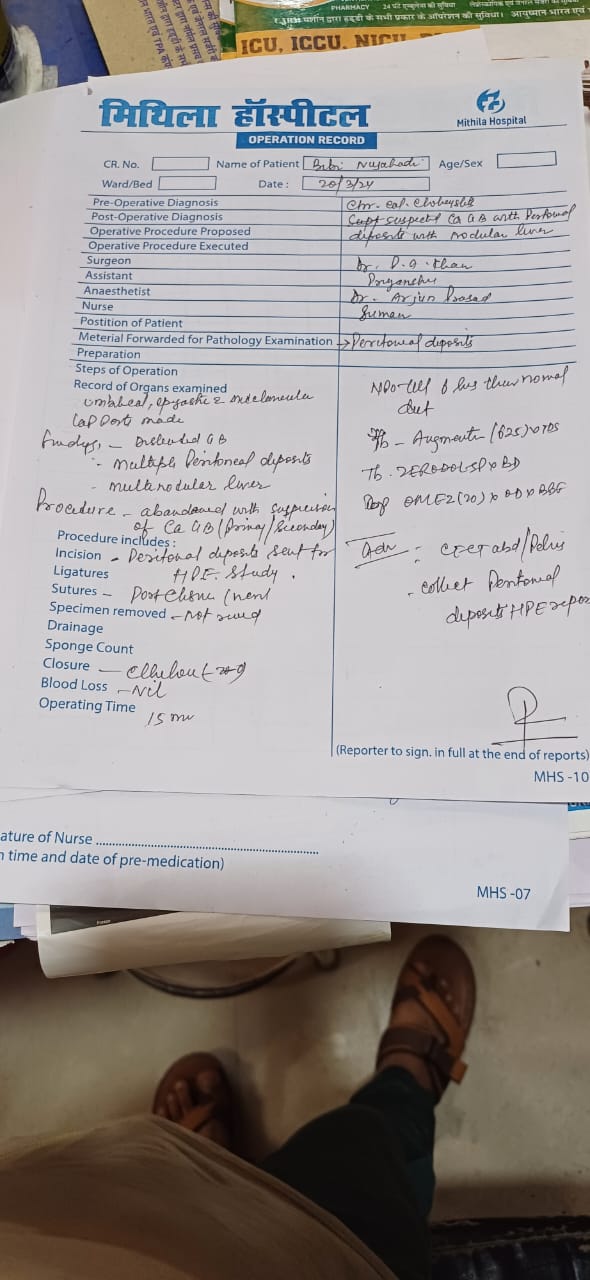 PHARMACY 24 घंटे एम्बुलेंस की सुविधा
मशीन द्वारा हड्डी के सभी प्रकार के ऑपरेशन की सुविधा। आयुष्मान भारत एवं
ICU, ICCU, NICU,
मिथिला हॉस्पीटल
Mithila Hospital
OPERATION RECORD
CR. No. Name of Patient Bibi Age/Sex
Ward/Bed Date : 20/3/24
Pre-Operative Diagnosis Chr. cal.
Post-Operative Diagnosis suspected Ca GB with Peritoneal
Operative Procedure Proposed deposits with nodular liver
Operative Procedure Executed
Surgeon Dr. Khan
Assistant Priyanshu
Anaesthetist Dr. Arjun Prasad
Nurse Suman
Postition of Patient
Meterial Forwarded for Pathology Examination → Peritoneal deposits
Preparation
Steps of Operation
Record of Organs examined
umbilical, epigastric &
Lap Ports made
Findings, - Distended GB
- multiple Peritoneal deposits
- multinodular liver
Procedure - abandoned with suspicion
of Ca GB (Primary/Secondary)
Procedure includes :
Incision - Peritoneal deposits sent for
Ligatures HPE study.
Sutures - Port
Specimen removed - Not
Drainage
Sponge Count
Closure -
Blood Loss - Nil
Operating Time
15 min
NPO till 6 hrs then normal
diet
Tb - Augmentin (625) x TDS
Tb. ZERODOL-SP x BD
OMEZ (20) x OD x BBF
Adv : CECT abd/Pelvis
- collect Peritoneal
deposits HPE repor
(Reporter to sign. in full at the end of reports)
MHS -10
ature of Nurse
n time and date of pre-medication)
MHS -07